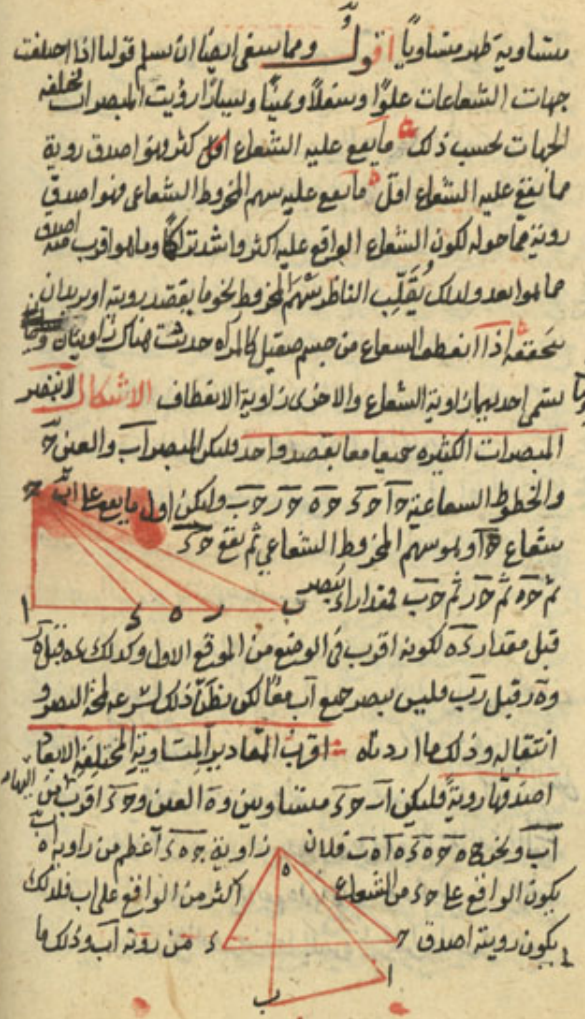 متساوية ظهر متساويا اقول ومما ينبغى ايضا ان يسلم قولنا اذا اختلفت
جهات الشعاعات علوا وسفلا ويمينا ويسارا رؤيت المبصرات مختلفة
الجهات بحسب ذلك ما يقع عليه الشعاع اكثر فهو اصدق روية
مما يقع عليه الشعاع اقل ما يقع عليه سهم المخروط الشعاعى فهو اصدق
روية مما حوله لكون الشعاع الواقع عليه اكثر واشد تراكما وما هو اقرب منه اصدق
مما هو ابعد ولذلك يقلب الناظر سهم المخروط نحو ما يقصد رويته او يريد ان
يتحققه اذا انعطف الشعاع من جسم صقيل كالمرآة حدثت هناك زاويتان
تسمى احديهما زاوية الشعاع والاخرى زاوية الانعطاف الاشكال لا تبصر
المبصرات الكثيرة جميعا معا بقصد واحد فليكن المبصر اب والعين ح
والخطوط الشعاعية حا حد حه حر حب وليكن اول ما يقع على اب
شعاع حا وهو سهم المخروط الشعاعى ثم يقع حد
ثم حه ثم حر ثم حب فمقدار اد تبصر
قبل مقدار ده لكونه اقرب فى الوضع من الموقع الاول وكذلك ده قبل هر
وهر قبل رب فليس يبصر جميع اب معا لكن يظن ذلك لسرعة لمحة البصر و
انتقاله وذلك ما اردناه اقرب المقادير المتساوية المختلفة الابعاد
اصدقها روية فليكن اب حد متساويين وه العين وحد اقرب اليها من
اب ونخرج هح هد ها هب فلان زاوية حهد اعظم من زاوية اهب
يكون الواقع على حد من الشعاع اكثر من الواقع على اب فلذلك
يكون رويته اصدق من روية اب وذلك ما